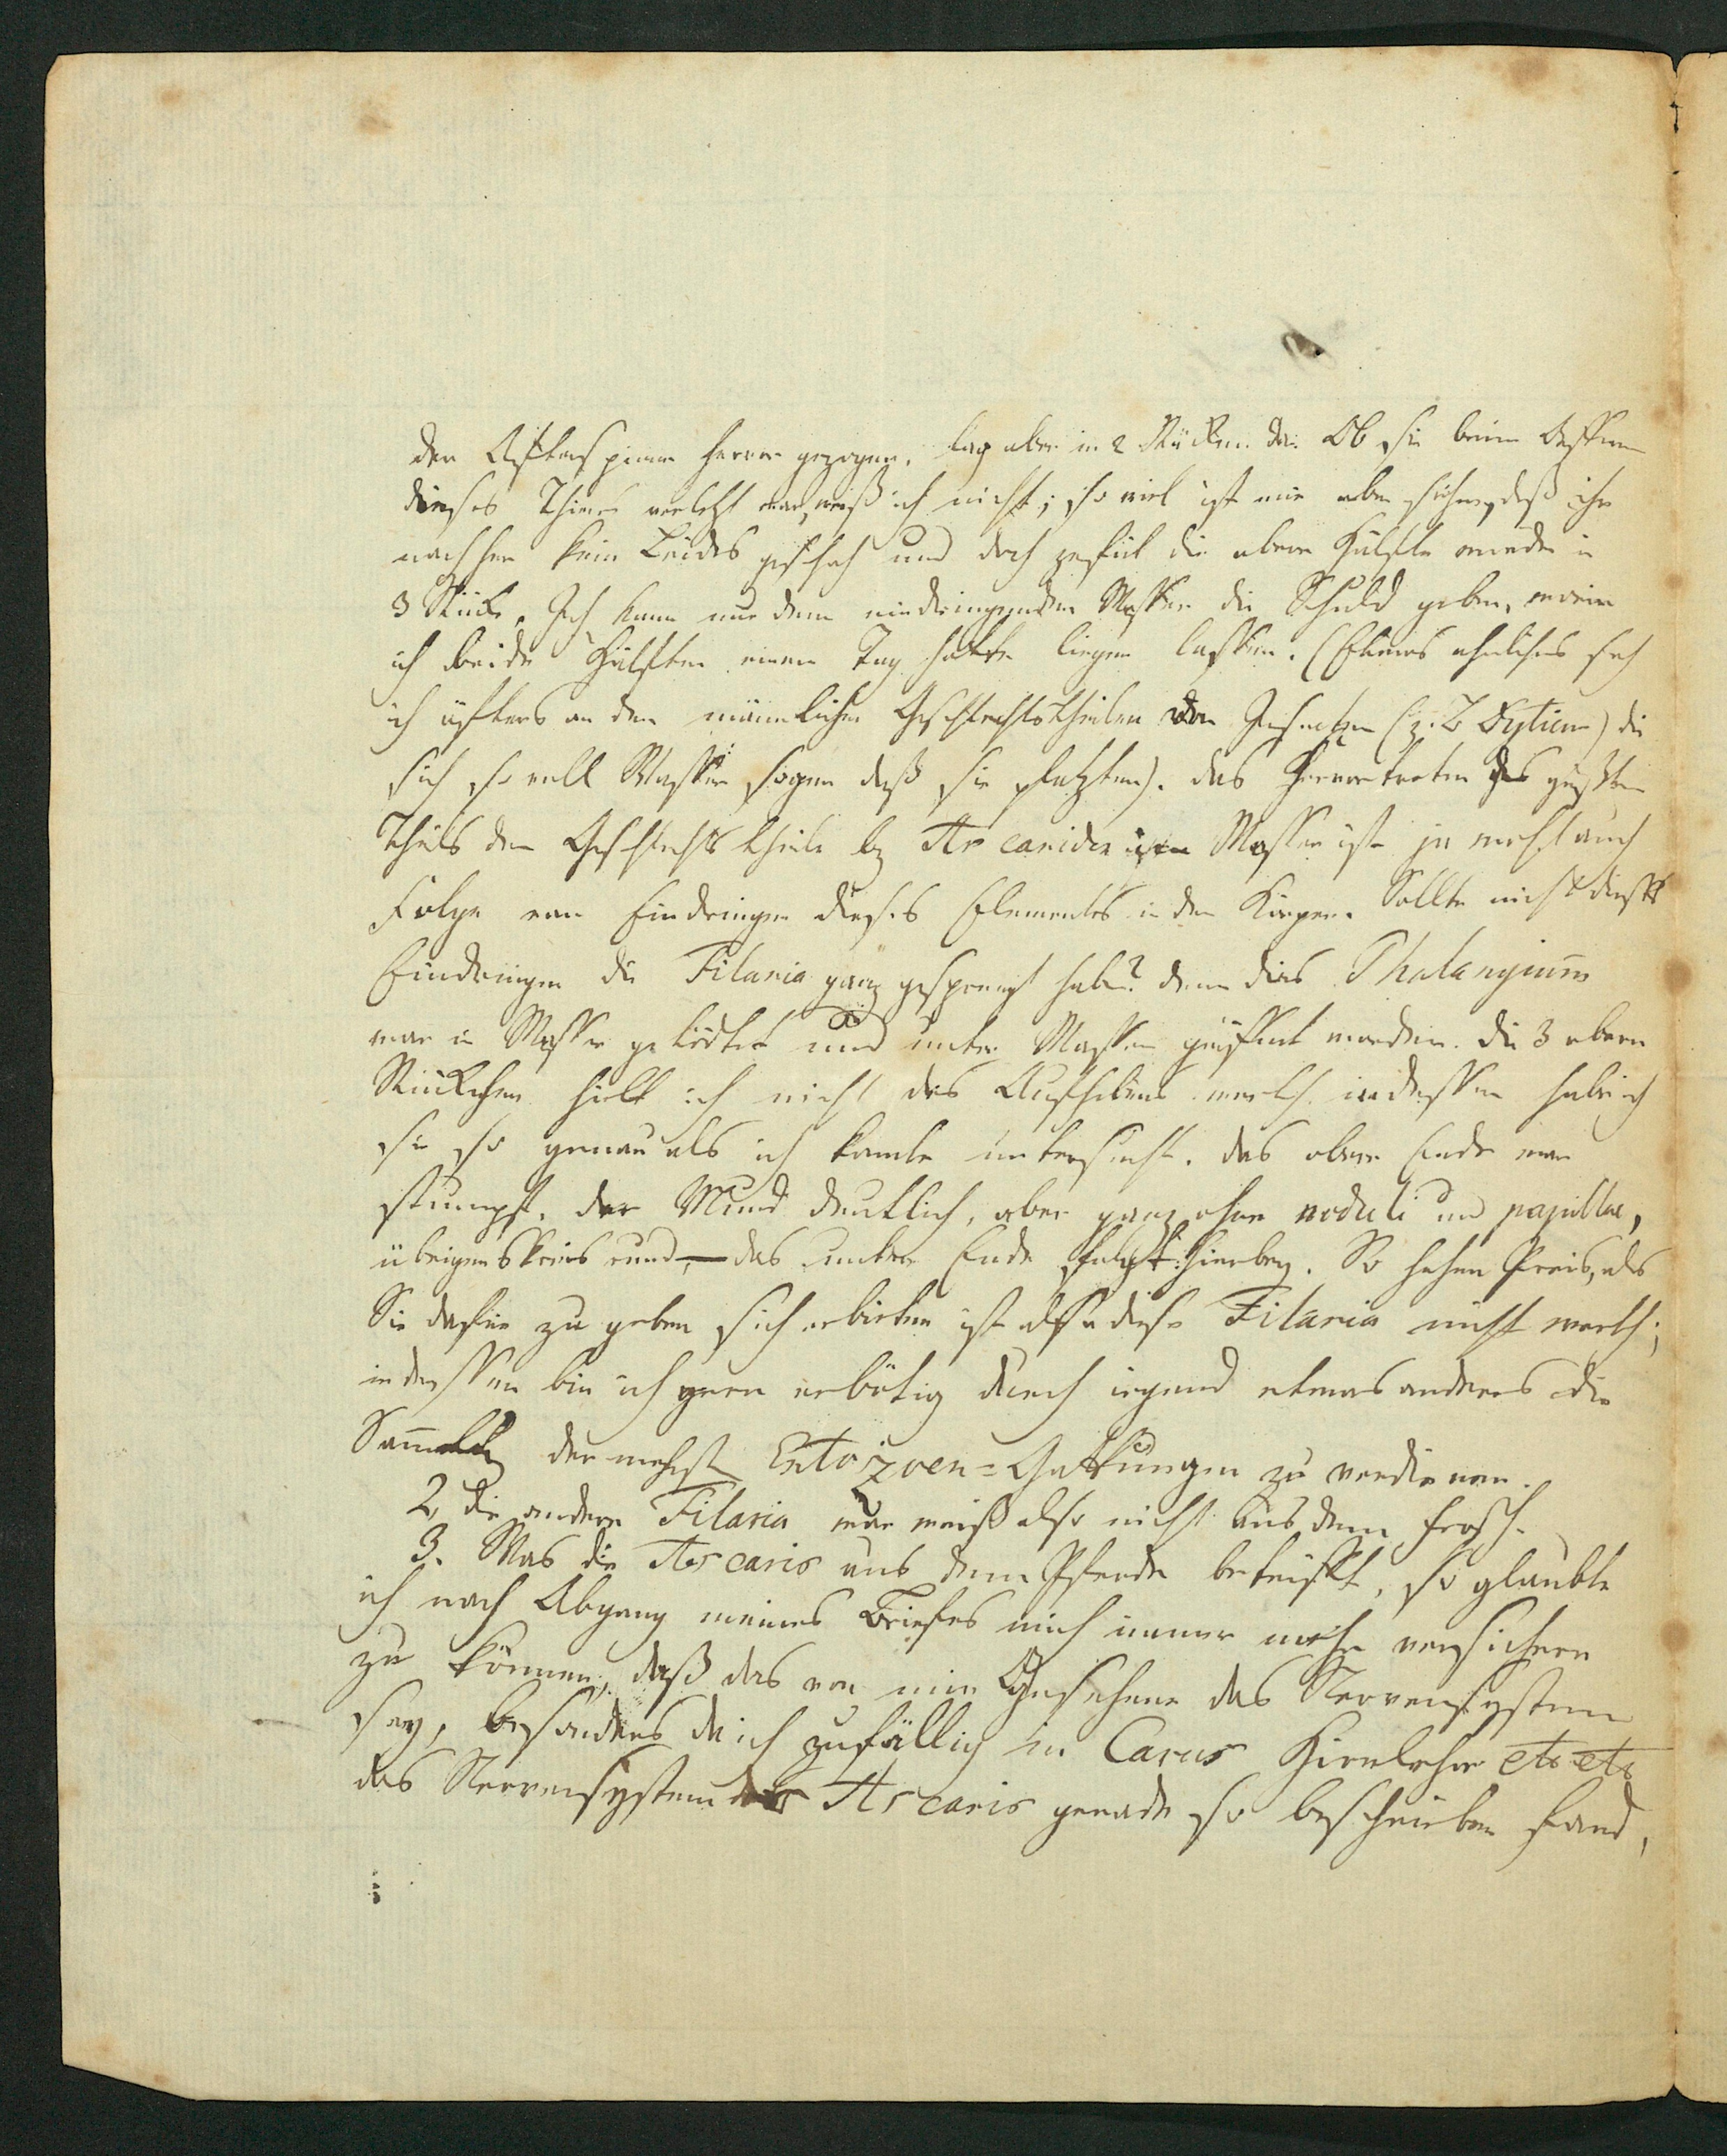 der Afterspinne hervor gezogen, lag aber in 2 Stücken da. Ob sie beim Oeffnen
dieses Thiers verletzt war, weiß ich nicht; so viel ist mir aber sicher, daß ihr
nachher kein Leides geschah und doch zerfiel die obere Hälfte wieder in
3 Stücke. Ich kann nur dem eindringenden Wasser die Schuld geben, worin
ich beide Hälften einen Tag hatte liegen lassen. (Etwas ähnliches sah
ich öfters an den männlichen Geschlechtstheilen von Insecten (z. B Dyticus) die
sich so voll Wasser sogen daß sie platzten). Das Hervortreten des größten
Theils der Geschlechtstheile bey Ascariden im Wasser ist ja wohl auch
Folge vom Eindringen dieses Elementes in den Körper. Sollte nicht dieses
Eindringen die Filaria ganz gesprengt haben? denn dies Phalangium
war in Wasser getödtet und unter Wasser geöffnet worden. Die 3 obern
Stückchen hielt ich nicht des Aufhebens werth indessen habe ich
sie so genau als ich konnte untersucht. Das obere Ende war
stumpf, der Mund deutlich, aber ganz ohne noduli und papillae,
übrigens kreisrund, — das untere Ende folgt hierbey. So hohen Preis, als
Sie dafür zu geben sich erbieten ist also diese Filaria nicht werth;
indessen bin ich gern erbötig durch irgend etwas anderes die
der mehrst Entozoen-Gattungen zu verdienen.
2 Die andere Filaria war weiß also nicht aus dem Frosch.
3. Was die Ascaris aus dem Pferde betrifft, so glaubte
ich nach Abgang meines Briefes mich immer mehr versichern
zu können, daß das von mir Gesehene das Nervensystem
sey, besonders da ich zufällig in Carus Hirnlehre etc etc
das Nervensystem der Ascaris gerade so beschrieben fand,